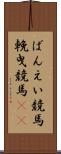 ばんえい競馬
輓曳競馬《《